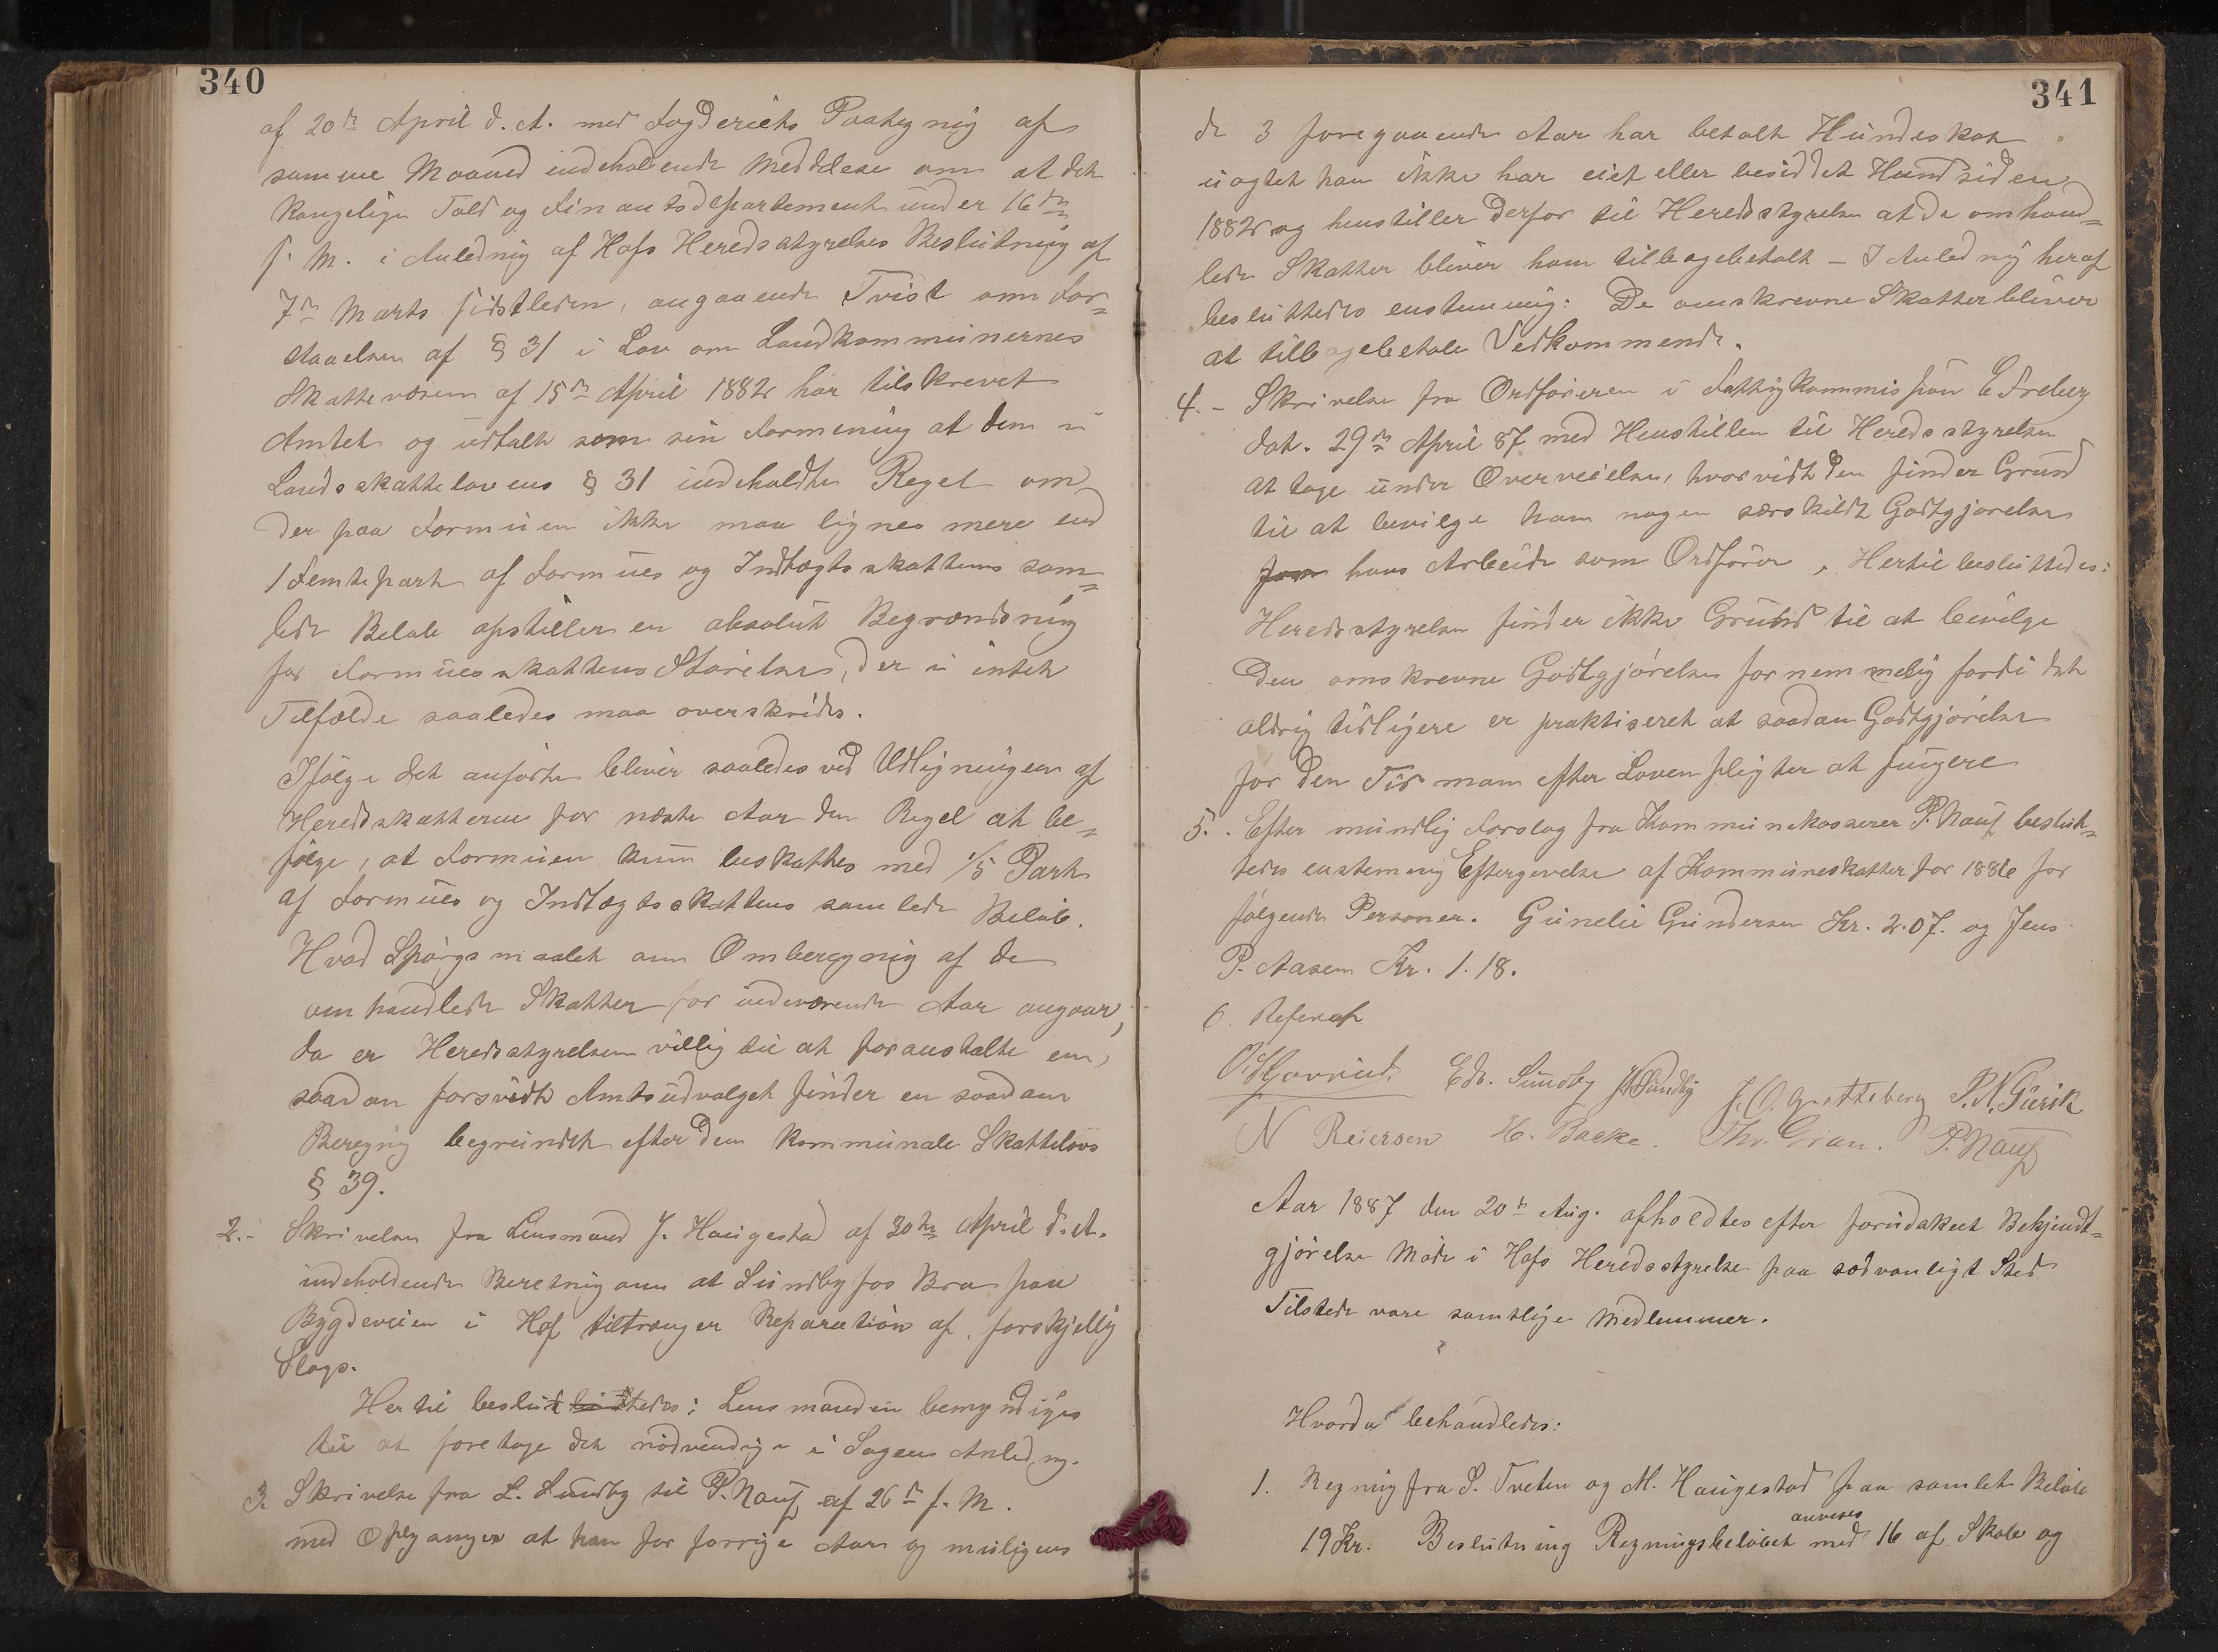 340
af 20de April d. A. med Fogderiets Paategnig af
samme Maaned indeholdende Meddelse om at det
Kongelige Told og Finantsdepartement under 16de
f. M. i Anlednig af Hofs Heredsstyrelses Beslutning af
7de Marts sidstleden, angaaende Tvist om For=
staaelsen af § 31 i Lov om Landkommunernes
Skattevæsen af 15de April 1882 har tilskrevet
Amtet og udtalt som sin Formening at den i
Landsskattelovens § 31 indeholdte Regel om
der paa Formuen ikke maa lignes mere end
1 Femtepart af Formues og Indtægtsskattens sam=
lede Beløb opstiller en absolut Begrændsning
for Formuesskattens Størelse, der i intet
Tilfælde saaledes maa overskrides.
Ifølge det anførte bliver saaledes ved Udligningen af
Heredsskatterne for næste Aar den Regel at be=
følge, at Formuen kun beskattes med 1/5 Part
af Formues og Indtægtsskattens samlede Beløb.
Hvad Spørgsmaalet om Omberegnig af de
omhandlede Skatter for indeværende Aar angaar,
da er Heredsstyrelsen villig til at foranstalte en
saadan forsvidt Amtsudvalget finder en saadan
Beregnig begrundet efter den kommunale Skattelovs
§ 39.
2.- Skrivelse fra Lensmand J. Haugestad af 30te April d. A.
indeholdende Beretnig om at Sundbyfos Bro paa
Bygdeveien i Hof tiltrænger Reparation af forskjellig
Slags.
Hertil beslut tedes: Lensmanden bemyndiges
til at foretage det nødvendige i Sagens Anledng.
3. Skrivelse fra L. Sundby til P. Nauf af 26de f. M.
med Oplysnger at han for forrige Aar og muligens
341
de 3 foregaaende Aar har betalt Hundeskat
uagtet han ikke har eiet eller besiddet Hund siden
1882 og henstiller derfor til Heredsstyrelsen at de omhand=
lede Skatter bliver ham tilbagebetalt – I Anlednig heraf
besluttedes enstemmig: De omskrevne Skatter bliver
at tilbagebetale Vedkommende.
4.- Skrivelse fra Ordføreren i Fattigkommission E Freberg
dat. 29de April 87 med Henstillen til Heredsstyrelsen
at tage under Overveielse, hvorvidt den finder Grund
til at bevilge ham nogen særskildt Godtgjørelse
for hans Arbeide som Ordfører, Hertil besluttedes:
Heredsstyrelsen finder ikke Grund til at bevilge
den omskrevne Godtgjørelse fornemmelig fordi det
aldrig tidligere er praktiseret at saadan Godtgjørelse
for den Tid man efter Loven pligter at fungere
5. . Efter mundlig Forslag fra Kommunekasserer P. Nauf beslut=
tedes enstemmig Eftergivelse af Kommuneskatter for 1886 for
følgende Personer. Gunelie Gundersen Kr. 2.07. og Jens
P. Aasen Kr. 1.18.
6. Referat
Edv. Sundby J Sundby J. O. Gretteberg P. N. Tufik
N Reiersen H. Bache. Thv. Gran. P. Nauf
Aar 1887 den 20de Aug. afholdtes efter forudskeet Bekjendt=
gjørelse Møde i Hofs Heredsstyrelse paa sædvanligt Sted
Tilstede vare samtlige Medlemmer.
Hvorda behandledes:
1. Regning fra S. Tveten og M. Haugestad paa samlet Beløb
19 Kr. Beslutning Regningsbeløbet anvises med 16 af Skole og